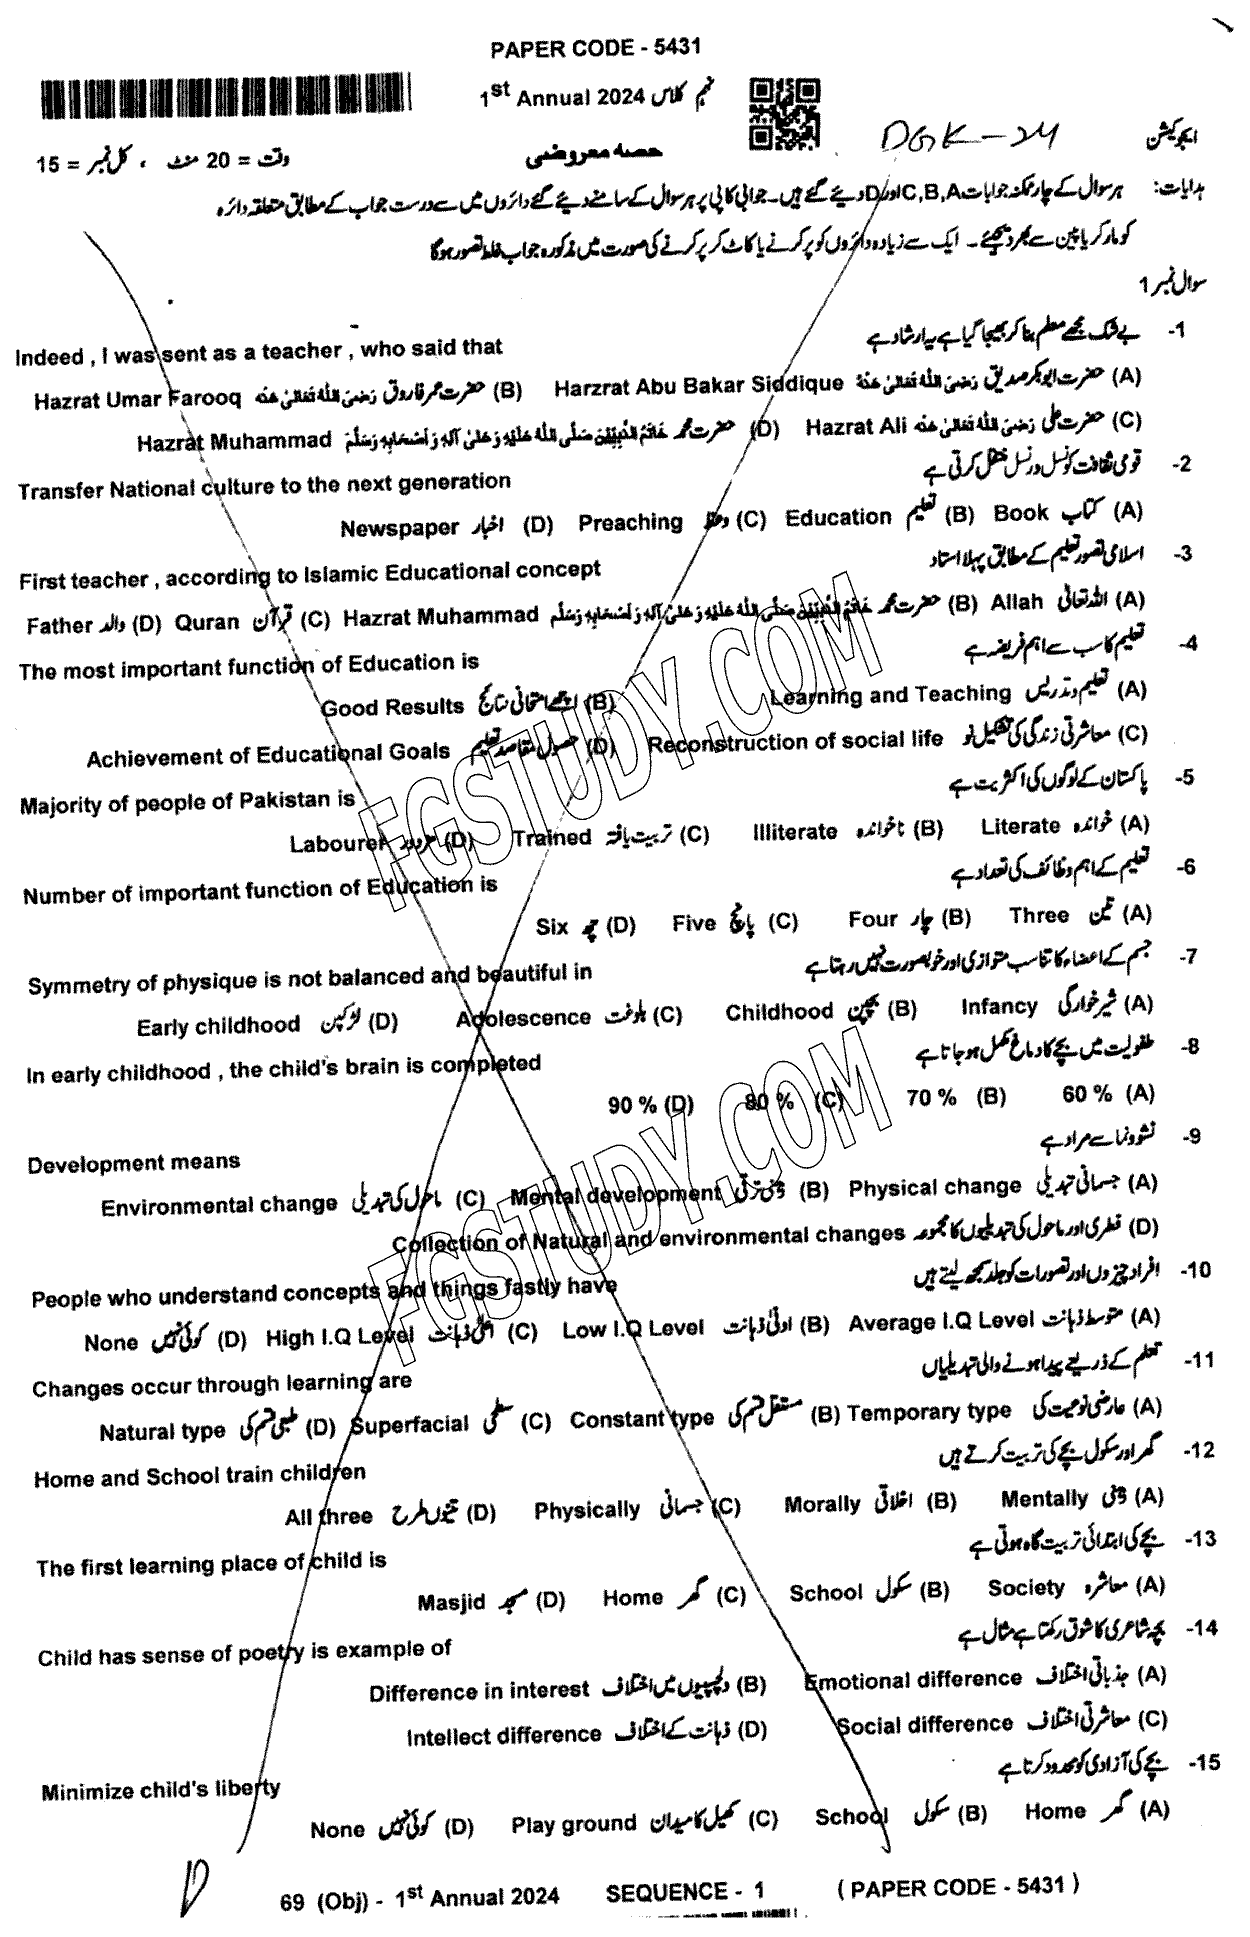 PAPER CODE - 5431
1st Annual 2024 نہم کلاس
DGK-24
ایجوکیشن
حصہ معروضی
وقت = 20 منٹ ، کل نمبر = 15
ہدایات: ہر سوال کے چار ممکنہ جوابات C,B,A اور D دیئے گئے ہیں۔ جوابی کاپی پر ہر سوال کے سامنے دیئے گئے دائروں میں سے درست جواب کے مطابق متعلقہ دائرہ
کو مارکر یا پین سے بھر دیجئے۔ ایک سے زیادہ دائروں کو پر کرنے یا کاٹ کر پر کرنے کی صورت میں مذکورہ جواب غلط تصور ہوگا
سوال نمبر 1
1- بے شک مجھے معلم بنا کر بھیجا گیا ہے یہ ارشاد ہے
Indeed , I was sent as a teacher , who said that
(A) حضرت ابوبکر صدیق رَضِیَ اللہُ تَعَالیٰ عَنْہُ Harzrat Abu Bakar Siddique (B) حضرت عمر فاروق رَضِیَ اللہُ تَعَالیٰ عَنْہُ Hazrat Umar Farooq
(C) حضرت علی رَضِیَ اللہُ تَعَالیٰ عَنْہُ Hazrat Ali (D) حضرت محمد خَاتَمُ النَّبِیّٖنَ صَلَّی اللہُ عَلَیْہِ وَعَلیٰ آلِہٖ وَاَصْحَابِہٖ وَسَلَّمَ Hazrat Muhammad
2- قومی ثقافت کو نسل در نسل منتقل کرتی ہے
Transfer National culture to the next generation
(A) کتاب Book (B) تعلیم Education (C) وعظ Preaching (D) اخبار Newspaper
3- اسلامی تصور تعلیم کے مطابق پہلا استاد
First teacher , according to Islamic Educational concept
(A) اللہ تعالیٰ Allah (B) حضرت محمد خَاتَمُ النَّبِیّٖنَ صَلَّی اللہُ عَلَیْہِ وَعَلیٰ آلِہٖ وَاَصْحَابِہٖ وَسَلَّمَ Hazrat Muhammad (C) قرآن Quran (D) والد Father
4- تعلیم کا سب سے اہم فریضہ ہے
The most important function of Education is
(A) تعلیم و تدریس Learning and Teaching (B) اچھے امتحانی نتائج Good Results
(C) معاشرتی زندگی کی تشکیل نو Reconstruction of social life (D) حصول مقاصد تعلیم Achievement of Educational Goals
5- پاکستان کے لوگوں کی اکثریت ہے
Majority of people of Pakistan is
(A) خواندہ Literate (B) ناخواندہ Illiterate (C) تربیت یافتہ Trained (D) مزدور Labourer
6- تعلیم کے اہم وظائف کی تعداد ہے
Number of important function of Education is
(A) تین Three (B) چار Four (C) پانچ Five (D) چھ Six
7- جسم کے اعضاء کا تناسب متوازی اور خوبصورت نہیں رہتا ہے
Symmetry of physique is not balanced and beautiful in
(A) شیر خوارگی Infancy (B) بچپن Childhood (C) بلوغت Adolescence (D) لڑکپن Early childhood
8- طفولیت میں بچے کا دماغ مکمل ہو جاتا ہے
In early childhood , the child's brain is completed
(A) 60 % (B) 70 % (C) 80 % (D) 90 %
9- نشوونما سے مراد ہے
Development means
(A) جسمانی تبدیلی Physical change (B) ذہنی ترقی Mental development (C) ماحول کی تبدیلی Environmental change
(D) فطری اور ماحول کی تبدیلیوں کا مجموعہ Collection of Natural and environmental changes
10- افراد چیزوں اور تصورات کو جلد سمجھ لیتے ہیں
People who understand concepts and things fastly have
(A) متوسط ذہانت Average I.Q Level (B) ادنیٰ ذہانت Low I.Q Level (C) اعلیٰ ذہانت High I.Q Level (D) کوئی نہیں None
11- تعلم کے ذریعے پیدا ہونے والی تبدیلیاں
Changes occur through learning are
(A) عارضی نوعیت کی Temporary type (B) مستقل قسم کی Constant type (C) سطحی Superfacial (D) طبعی قسم کی Natural type
12- گھر اور سکول بچے کی تربیت کرتے ہیں
Home and School train children
(A) ذہنی Mentally (B) اخلاقی Morally (C) جسمانی Physically (D) تینوں طرح All three
13- بچے کی ابتدائی تربیت گاہ ہوتی ہے
The first learning place of child is
(A) معاشرہ Society (B) سکول School (C) گھر Home (D) مسجد Masjid
14- بچہ شاعری کا شوق رکھتا ہے مثال ہے
Child has sense of poetry is example of
(A) جذباتی اختلاف Emotional difference (B) دلچسپیوں میں اختلاف Difference in interest
(C) معاشرتی اختلاف Social difference (D) ذہانت کے اختلاف Intellect difference
15- بچے کی آزادی کو محدود کرتا ہے
Minimize child's liberty
(A) گھر Home (B) سکول School (C) کھیل کا میدان Play ground (D) کوئی نہیں None
69 (Obj) - 1st Annual 2024 SEQUENCE - 1 ( PAPER CODE - 5431 )
FGSTUDY.COM
FGSTUDY.COM